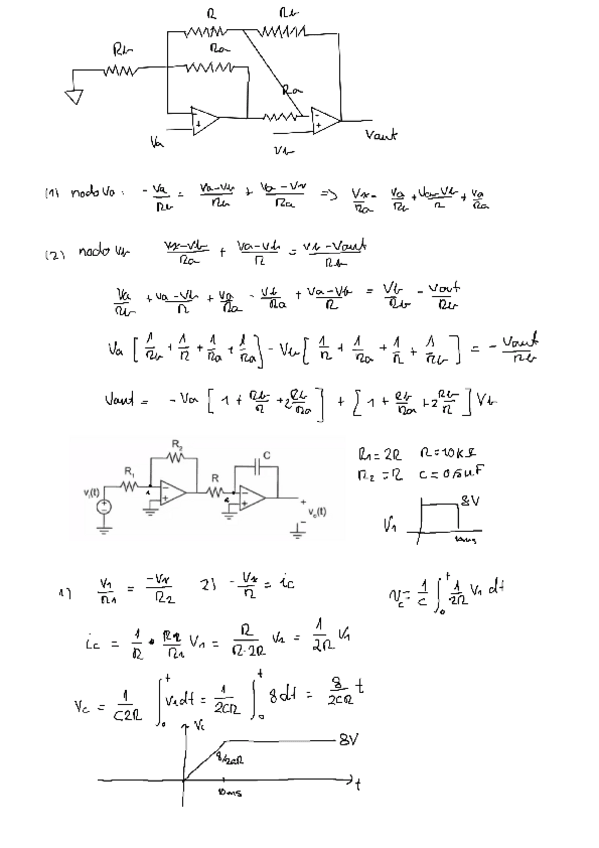 R Rb
Rb Ra
Ra
Va Vb Vout
(1) nodo Va: -Va/Rb = Va-Vb/R + Va-Vx/Ra => Vx/Ra = Va/Rb + Va-Vb/R + Va/Ra
(2) nodo Vb Vx-Vb/Ra + Va-Vb/R = Vb-Vout/Rb
Va/Rb + Va-Vb/R + Va/Ra - Vb/Ra + Va-Vb/R = Vb/Rb - Vout/Rb
Va [1/Rb + 1/R + 1/Ra + 1/Ra] - Vb [1/R + 1/Ra + 1/R + 1/Rb] = - Vout/Rb
Vout = -Va [1 + Rb/R + 2Rb/Ra] + [1 + Rb/Ra + 2Rb/R] Vb
R2 C
R1 R
vi(t) vo(t)
R1=2R R=10kΩ
R2=R C=0,5uF
V1 8V
10ms
1) V1/R1 = -Vx/R2 2) -Vx/R = ic Vc = 1/C ∫₀ᵗ 1/2R V1 dt
ic = 1/R · R2/R1 V1 = R/R·2R V1 = 1/2R V1
Vc = 1/C2R ∫₀ᵗ V1dt = 1/2CR ∫₀ᵗ 8dt = 8/2CR t
Vc 8V
8/2CR
10ms t